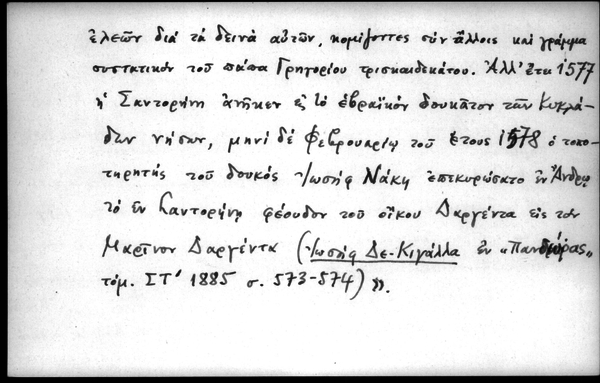 ἐλεῶν διὰ τὰ δεινὰ αὐτῶν, κομίζοντες σὺν ἄλλοις καὶ γράμμα
συστατικὸν τοῦ πάπα Γρηγορίου τρισκαιδεκάτου. Ἀλλ' ἔτει 1577
ἡ Σαντορήνη ἀνῆκεν εἰς τὸ ἑβραϊκὸν δουκᾶτον τῶν Κυκλά-
δων νήσων, μηνὶ δὲ Φεβρουαρίῳ τοῦ ἔτους 1578 ὁ τοπο-
τηρητὴς τοῦ δουκὸς Ἰωσὴφ Νάκη ἐπεκυρώσατο ἐν Ἄνδρῳ
τὸ ἐν Σαντορήνῃ φέουδον τοῦ οἴκου Δαργέντα εἰς τὸν
Μαρῖνον Δαργέντα (Ἰωσὴφ Δε-Κιγάλλα ἐν «Πανδώρας»
τόμ. ΣΤ' 1885 σ. 573-574)».